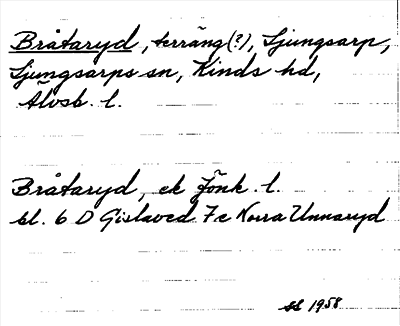 Bråtaryd, terräng(?), Ljungsarp,
Ljungsarps sn, Kinds hd,
Älvsb. l.
Bråtaryd, ek Jönk. l.
bl. 6 D Gislaved 7 e Norra Unnaryd
SS 1958